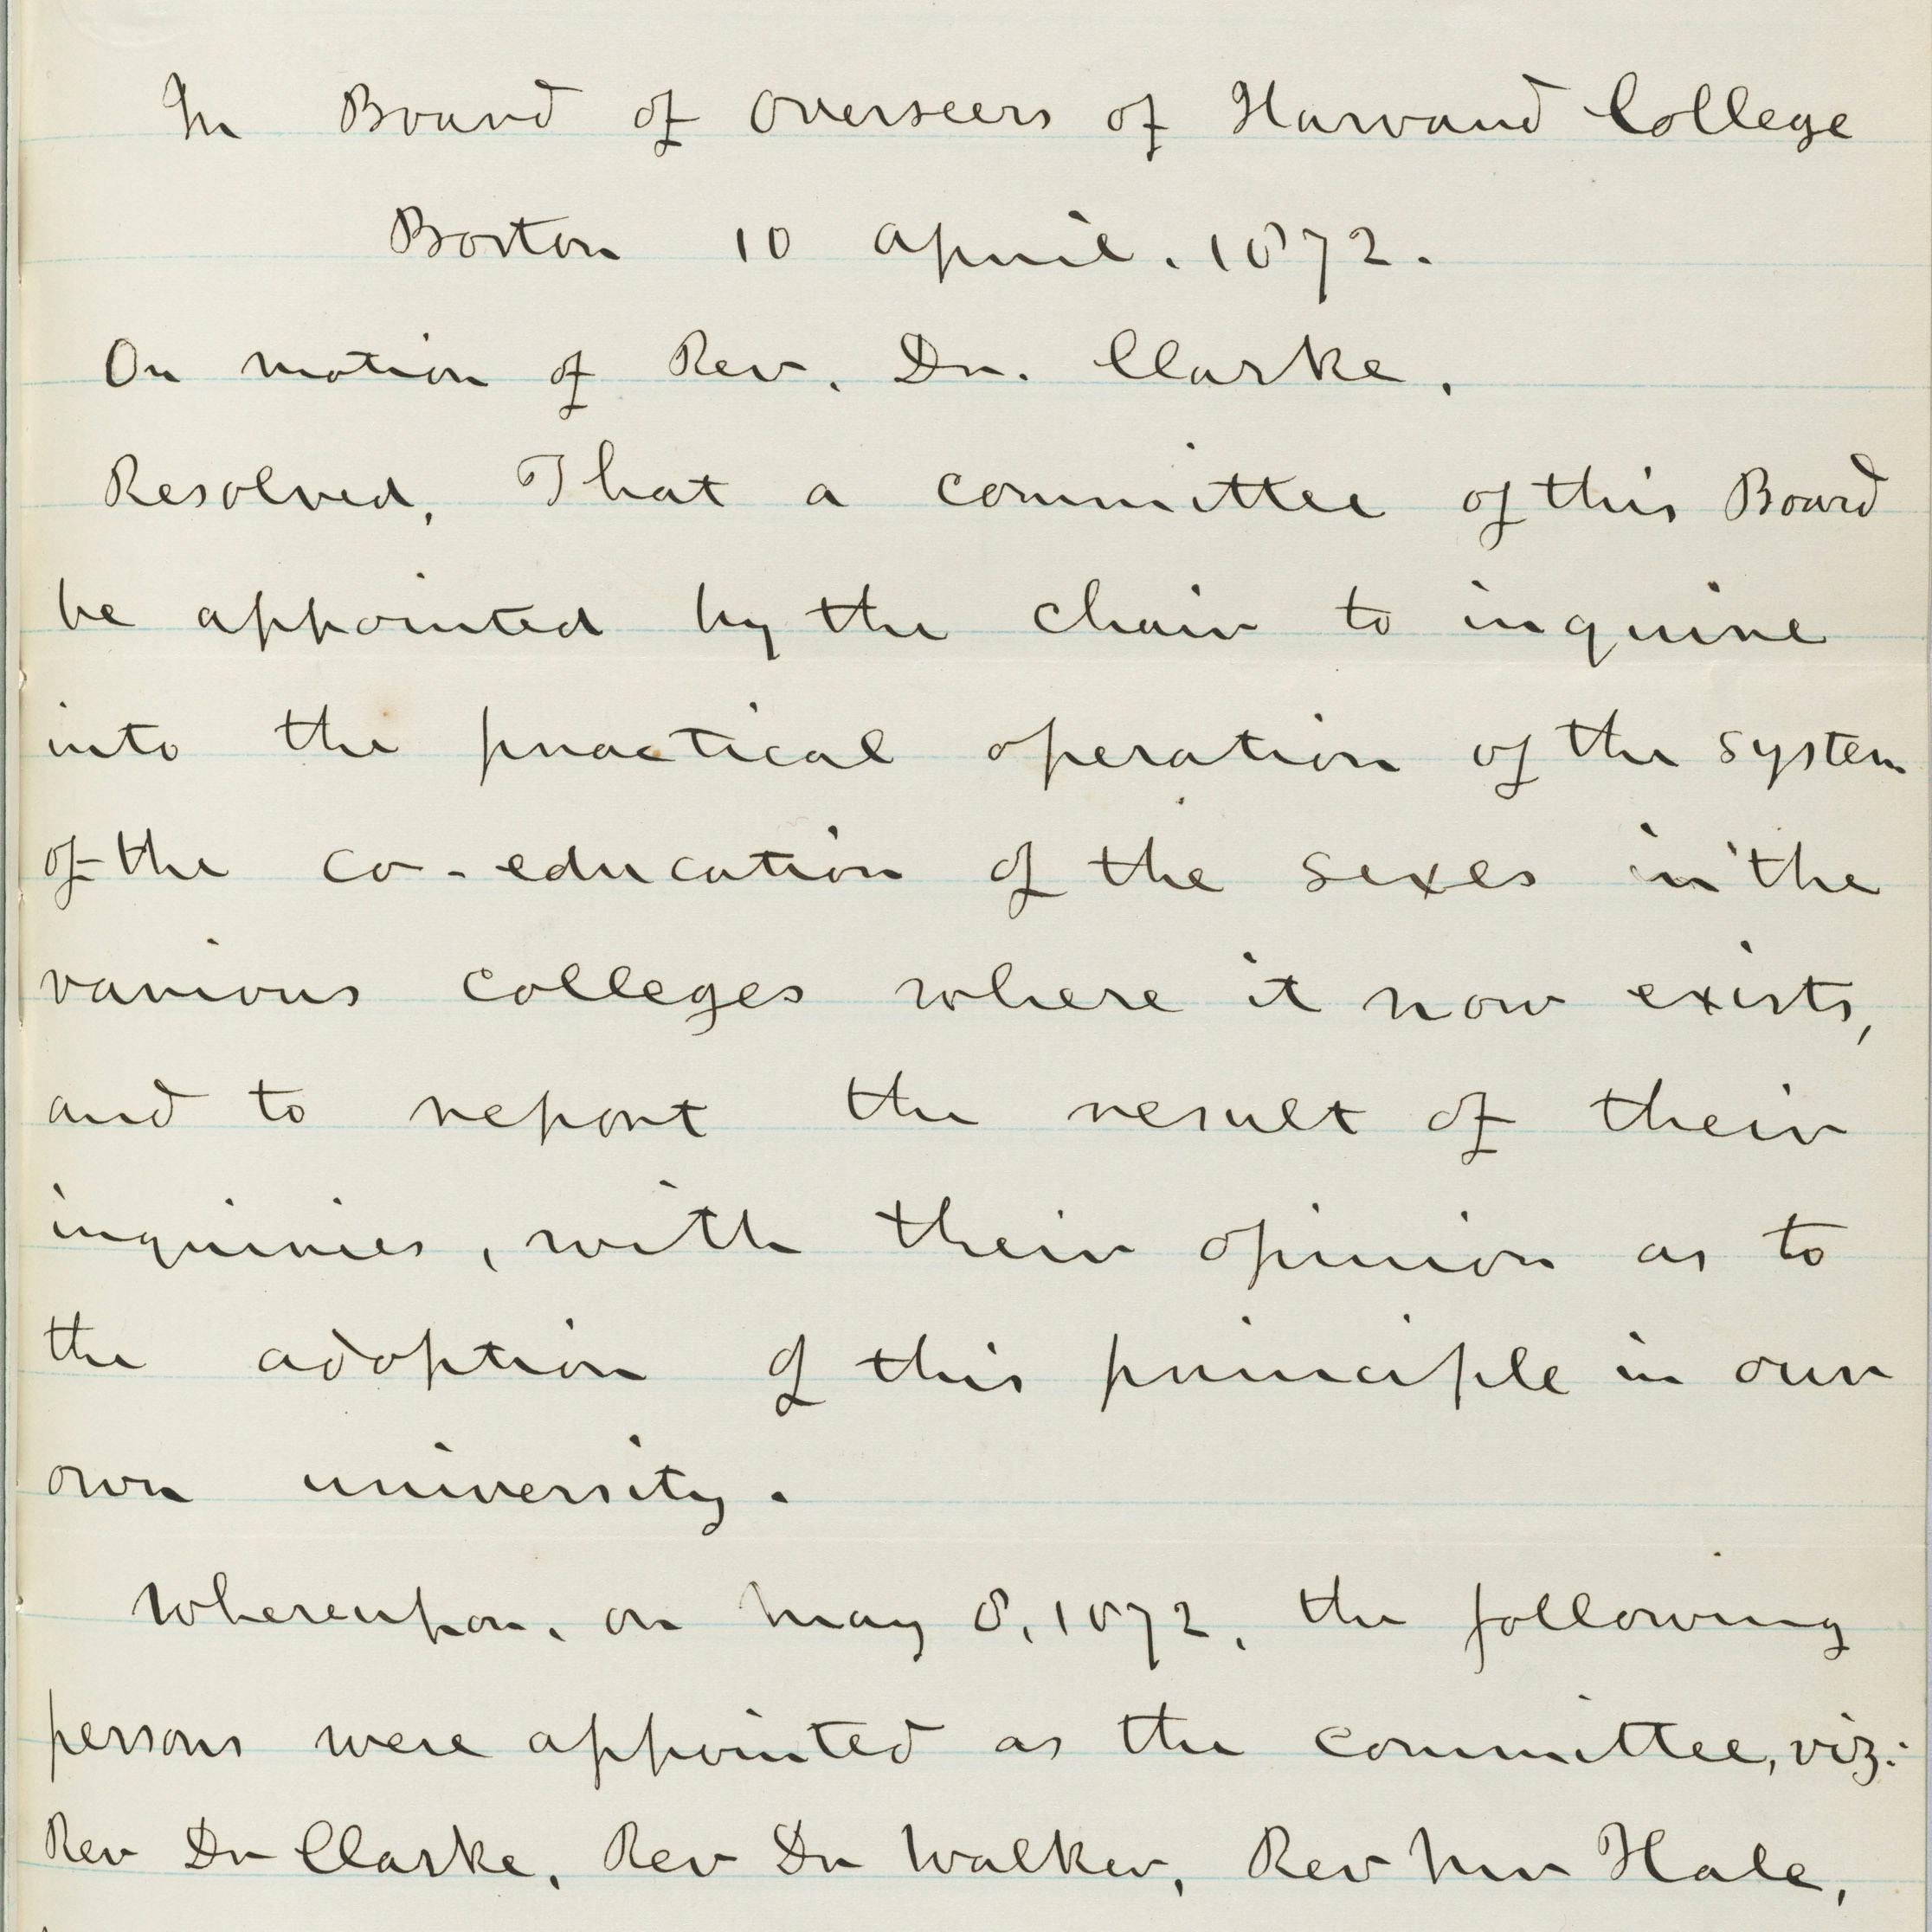 In Board of Overseers of Harvard College
Boston 10 April, 1872.
On motion of Rev. Dr. Clarke,
Resolved, That a committee of this Board
be appointed by the chair to inquire
into the practical operation of the system
of the co-education of the sexes in the
various colleges where it now exists,
and to report the result of their
inquiries, with their opinion as to
the adoption of this principle in our
own university.
Whereupon, on May 8, 1872, the following
persons were appointed as the committee, viz:
Rev Dr Clarke, Rev Dr Walker, Rev Mr Hale,